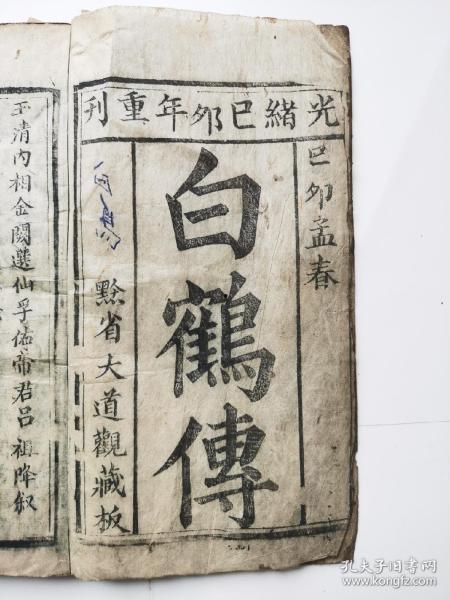 光緒己卯年重刊
己卯孟春
白鶴傳
黔省大道觀藏板
玉清內相金闕選仙孚佑帝君呂祖降叙
孔夫子旧书网
www.kongfz.com